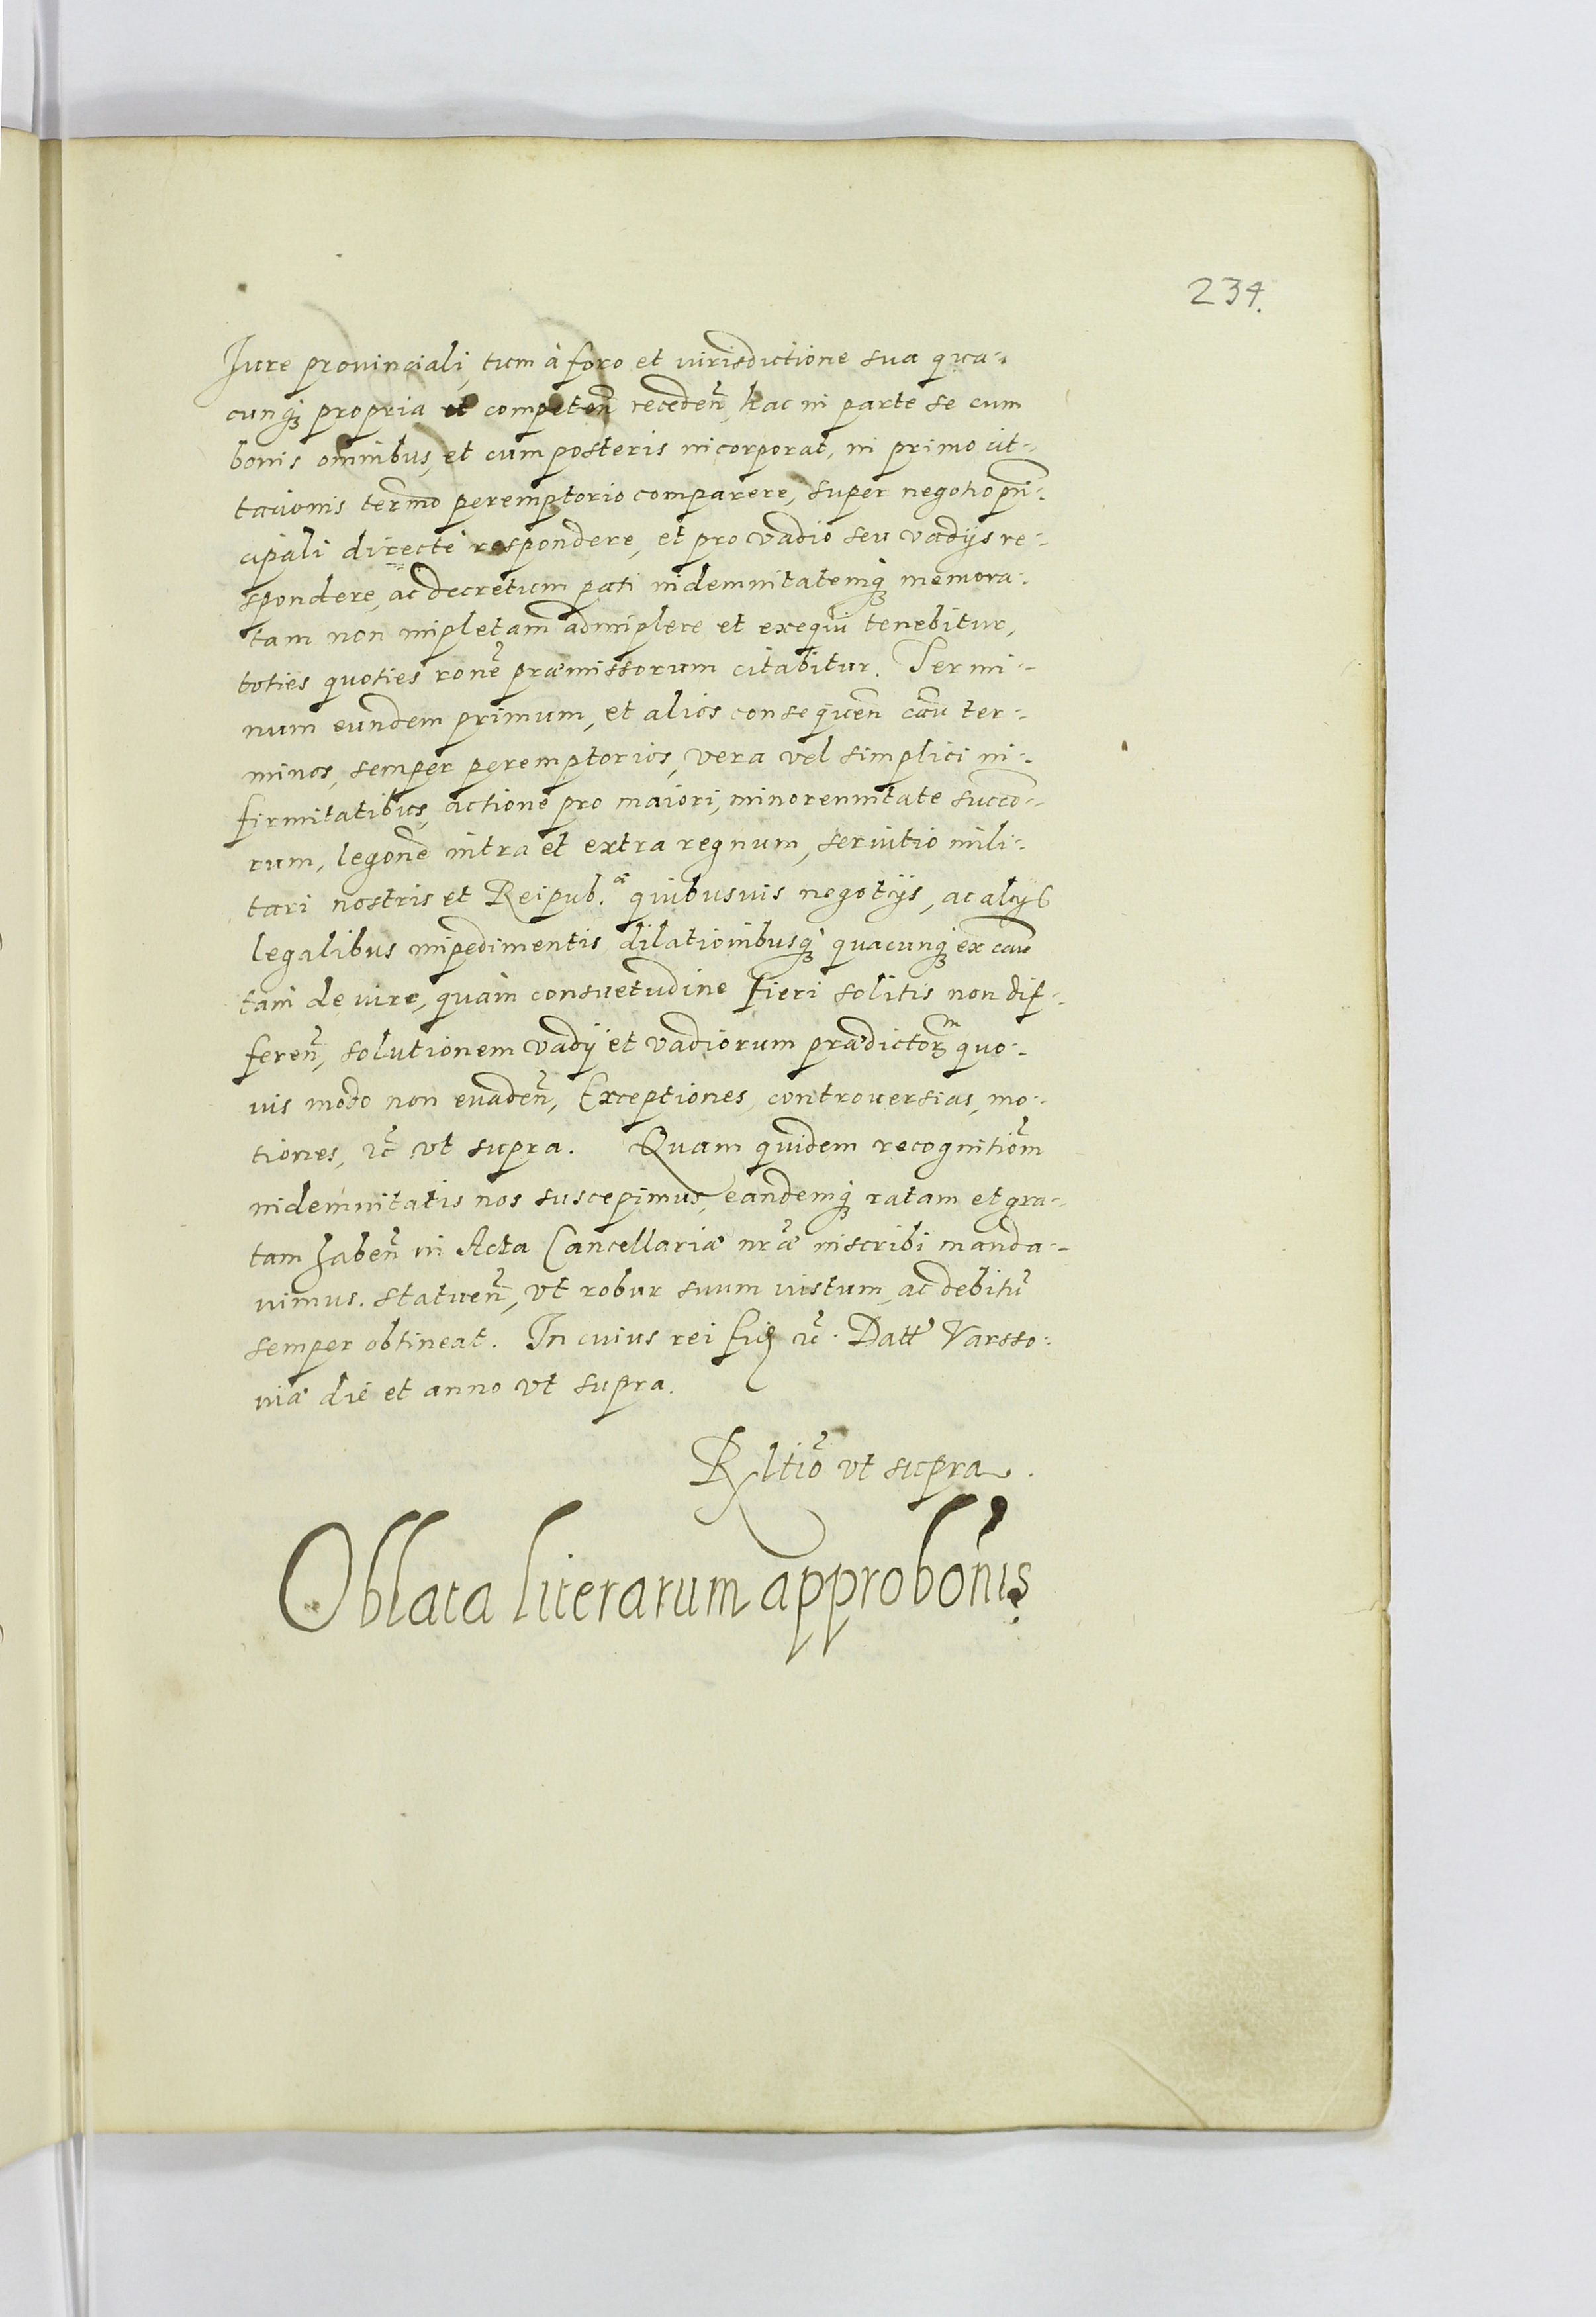 234.
Jure prouinciali, tum à foro et iurisdictione sua qua-
cunq; propria et competen̄ receden̄, hac in parte se cum
bonis omnibus, et cum posteris incorporat, in primo cit-
tacionis termō peremptorio comparere, super negotio prin-
cipali directè respondere, et pro vadio seu vadijs re-
spondere, ac decretum pati indemnitatemq; memora-
tam non impletam adimplere et exequi tenebitur,
toties quoties rone præmissorum citabitur. Termi-
num eundem primum, et alios consequen̄ cau ter-
minos, semper peremptorios, vera vel simplici in-
firmitatibus, actione pro maiori, minorennitate succō-
rum, legone intra et extra regnum, seruitio mili-
tari nostris et Reipub.æ quibusuis negotijs, ac alijs
legalibus impedimentis dilationibusq; quacunq; ex cau
tam de iure, quàm consuetudine fieri solitis non dif-
feren̄, solutionem vadij et vadiorum prædictorm quo-
uis modo non euaden̄, Exceptiones, controuersias, mo-
tiones, etc̄ vt supra. Quam quidem recognitiom̄
indemnitatis nos suscepimus, eandemq; ratam et gra-
tam haben̄ in Acta Cancellariæ nr̄æ inscribi manda-
uimus. statuen̄, vt robur suum iustum, ac debitū
semper obtineat. In cuius rei fid etc̄. Datt Varsso-
uiæ die et anno vt supra.
Rltiō vt supra.
Oblata literarum approbōnis